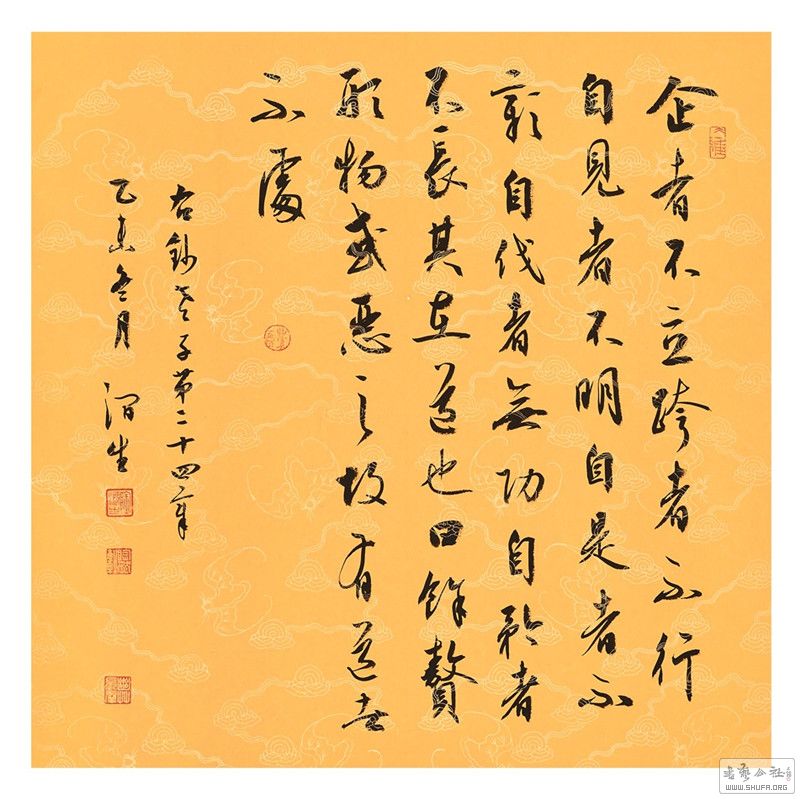 企者不立跨者不行
自見者不明自是者不
彰自伐者無功自矜者
不長其在道也曰餘贅
形物或惡之故有道者
不處
右鈔老子第二十四章
乙冬月 渭生
書藝公社
WWW.SHUFA.ORG